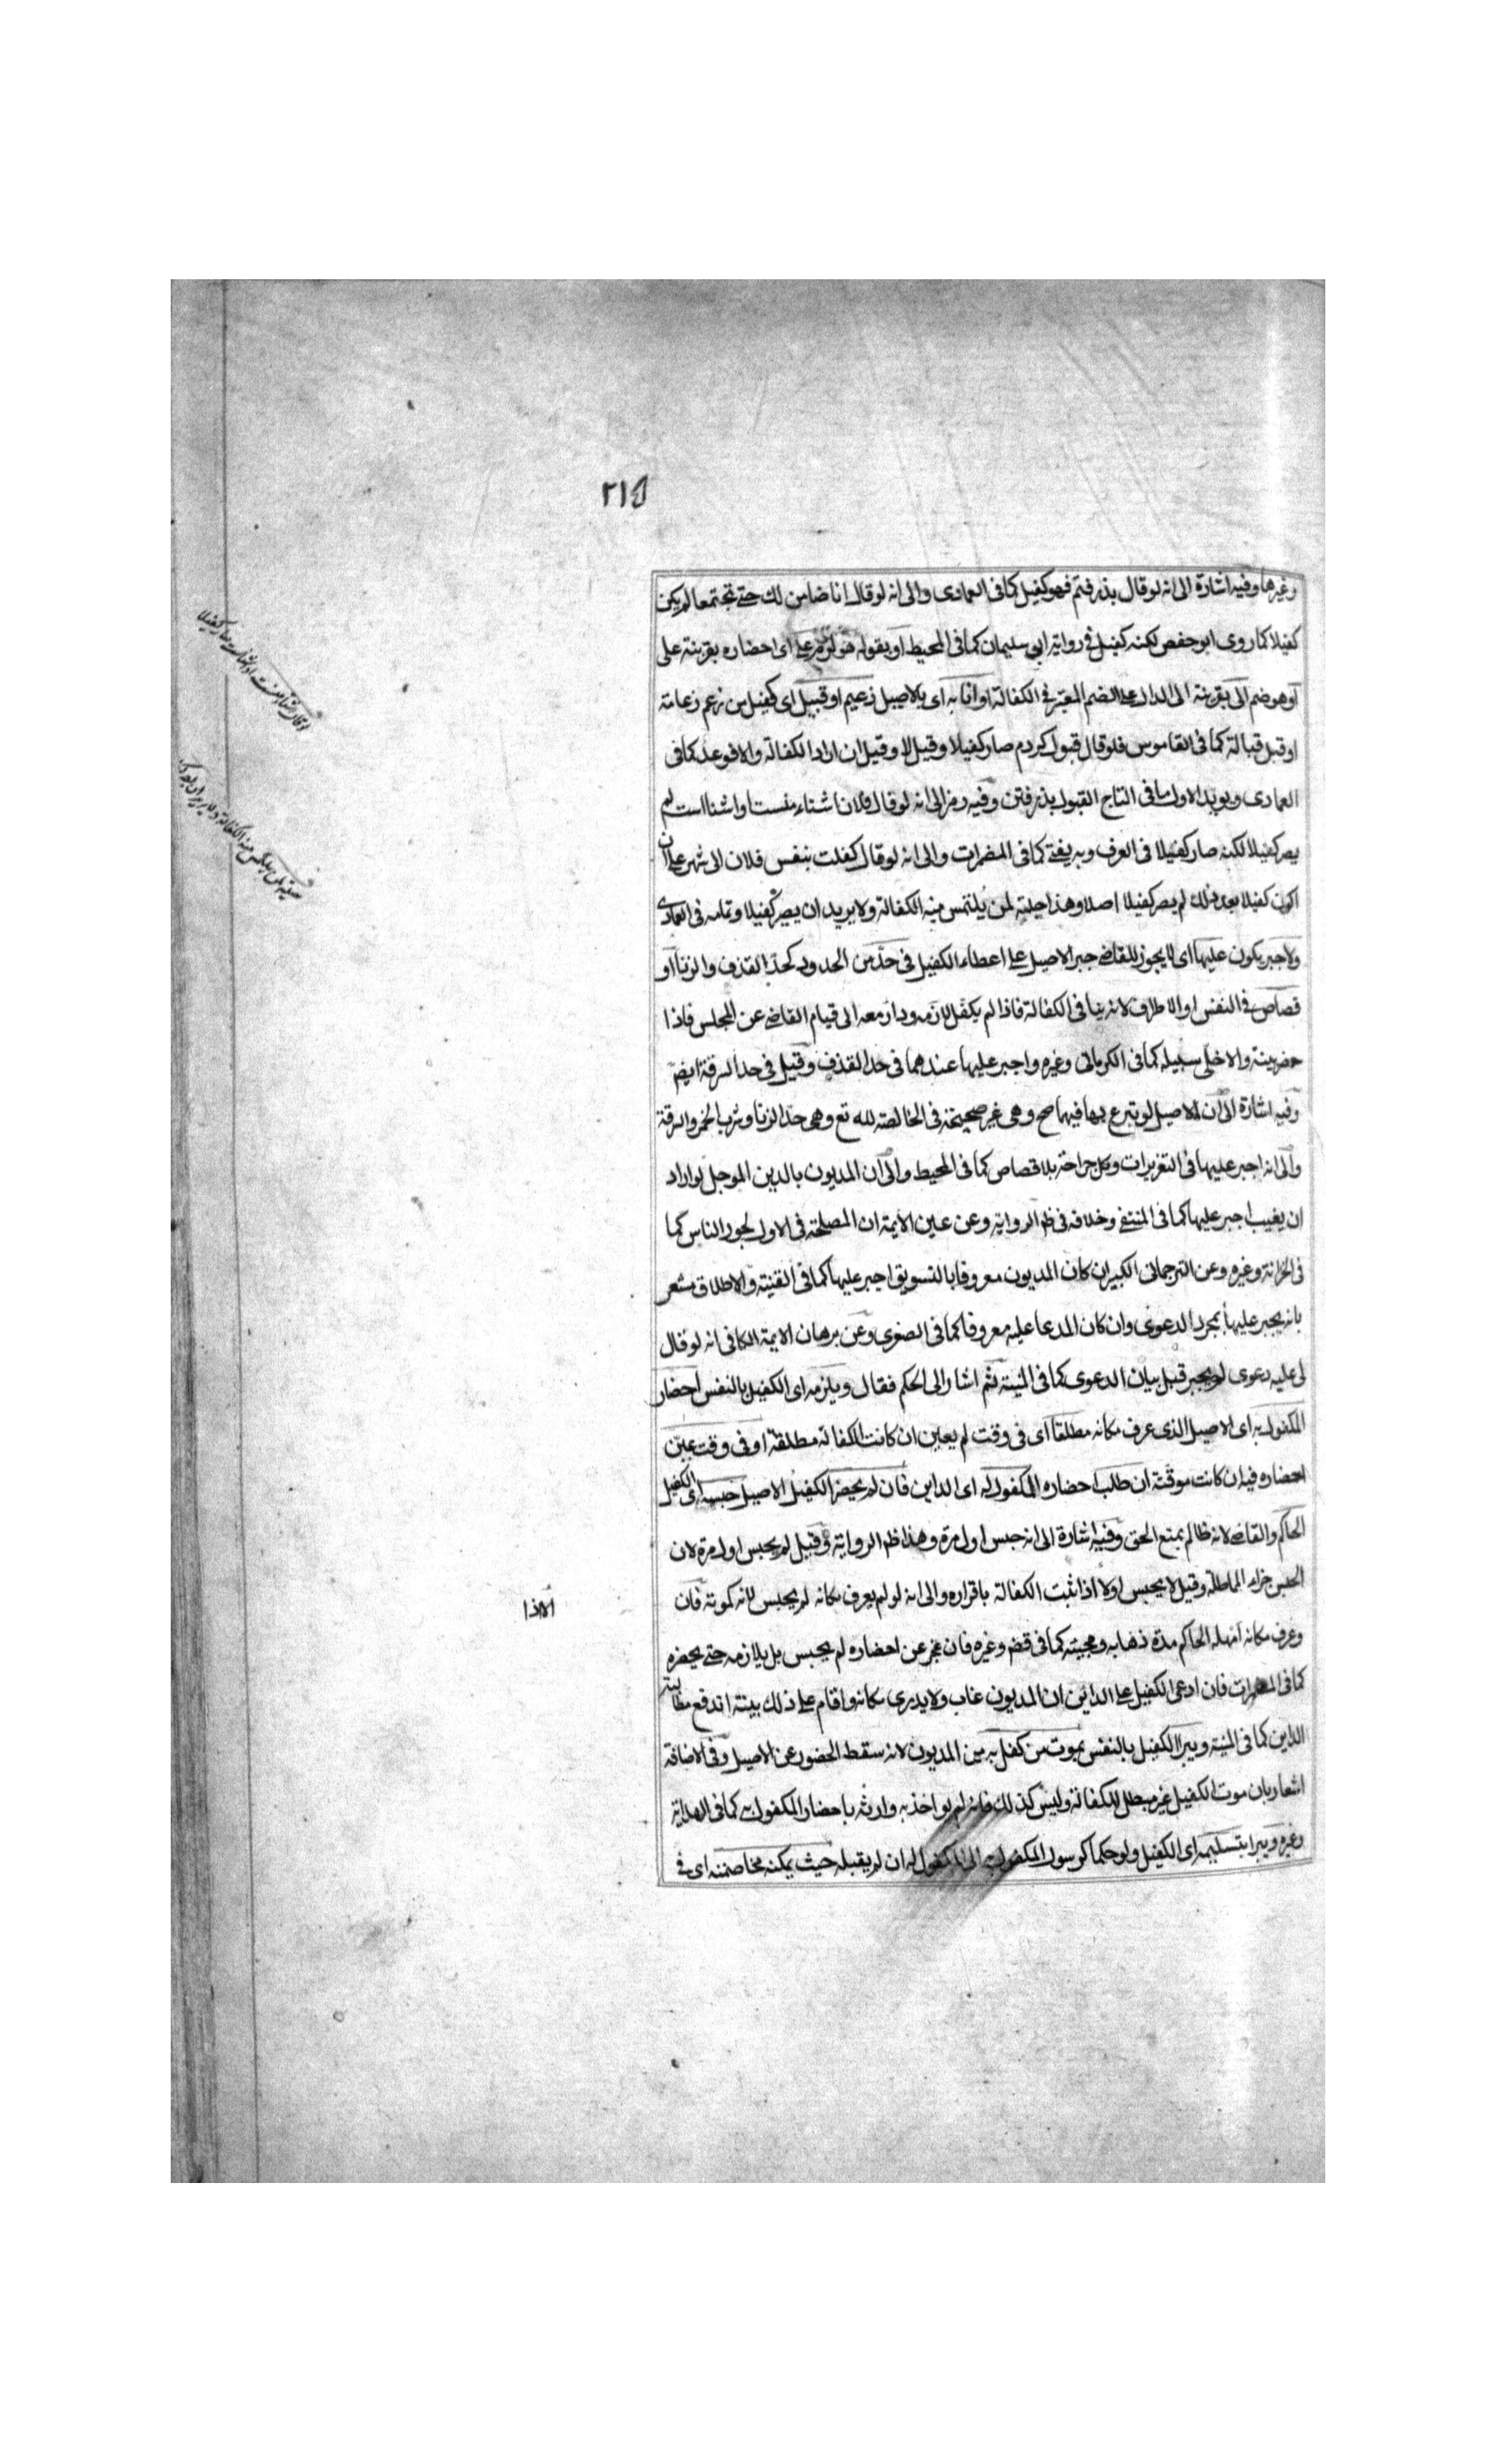 ٢١٥
وغيرها وفيه اشارة الى انه لو قال بذرفتم فهو كفيل كما فى العمادى والى انه لو قال انا ضامن لك حتى تجتمعا لم يكن
كفيلا كما روى ابو حفص لكنه كفيل فى رواية ابى سليمان كما فى المحيط او بقوله هو لزم على اى احضاره بقرينة على
او هو ضم الى بقرينة الى الدال على الضم المعتبر فى الكفالة او انا به اى بالاصيل زعيم او قبيل اى كفيل من زعم زعامة
او قبل قبالة كما فى القاموس فلو قال قبول كردم صار كفيلا وقيل لا وقيل ان اراد الكفالة والا فوعد كما فى
العمادى ويويد الاول ما فى التاج القبول بذرفتن وفيه رمز الى انه لو قال فلان اشناء منست او اشنا است لم
يصر كفيلا لكنه صار كفيلا فى العرف وبه يفتى كما فى المضمرات والى انه لو قال كفلت بنفس فلان الى شهر على ان
اكون كفيلا بعد ذلك لم يصر كفيلا اصلا وهذا حيلة لمن يلتمس منه الكفالة ولا يريد ان يصير كفيلا وتمامه فى العمادى
ولا جبر يكون عليها اى لا يجوز للقاضى جبر الاصيل على اعطاء الكفيل فى حد من الحدود كحد القذف والزنا او
قصاص فى النفس او الاطراف لانه ينافى الكفالة فاذا لم يكفل لازمه ودار معه الى قيام القاضى عن المجلس فاذا
حضر بينة والا خلى سبيله كما فى الكرمانى وغيره واجبر عليها عندهما فى حد القذف وقيل فى حد السرقة ايضم
وفيه اشارة الى ان الاصيل لو تبرع بها فيهما صح وهى غير صحيحة فى الخالصة لله تع وهى حد الزنا وشرب الخمر والسرقة
والى انه اجبر عليها فى التعزيرات وكل جراحة بلا قصاص كما فى المحيط والى ان المديون بالدين الموجل لو اراد
ان يغيب اجبر عليها كما فى المنتقى وخلافه فى ظم الرواية وعن عين الايمة ان المصلحة فى الاول لجور الناس كما
فى الخزانة وغيره وعن الترجمانى الكبير ان كان المديون معروفا بالتسويق اجبر عليها كما فى القنية والاطلاق مشعر
بانه يجبر عليها بمجرد الدعوى وان كان المدعا عليه معروفا كما فى الصغرى وعن برهان الايمة الكافى انه لو قال
لى عليه دعوى لم يجبر قبل بيان الدعوى كما فى المنية ثم اشار الى الحكم فقال ويلزمه اى الكفيل بالنفس احضار
المكفول به اى الاصيل الذى عرف مكانه مطلقا اى فى وقت لم يعين ان كانت الكفالة مطلقة او فى وقت عين
احضاره فيه ان كانت موقتة ان طلب احضاره المكفول له اى الداين فان لم يحضر الكفيل الاصيل حبسه اى الكفيل
الحاكم والقاضى لانه ظالم بمنع الحق وفيه اشارة الى انه حبس اول مرة وهذا ظم الرواية وقيل لم يحبس اول مرة لان
الحبس جزاء المماطلة وقيل لا يحبس اولا اذا ثبت الكفالة باقراره والى انه لو لم يعرف مكانه لم يحبس لانه كموته فان
وعرف مكانه امهله الحاكم مدة ذهابه ومجيئه كما فى قضم وغيره فان عجز عن احضاره لم يحبس بل يلازمه حتى يحضره
كما فى المضمرات فان ادعى الكفيل على الداين ان المديون غاب ولا يدرى مكانه واقام على ذلك بينة اندفع مطالبة
الداين كما فى المنية ويبرا الكفيل بالنفس بموت من كفل به من المديون لانه سقط الحضور عن الاصيل وفى الاضافة
اشعار بان موت الكفيل غير مبطل للكفالة وليس كذلك فانه لم يواخذ به وارثه باحضار المكفول به كما فى الهداية
وغيره ويبرا بتسليمه اى الكفيل ولو حكما كرسول المكفول به الى المكفول له ان لم يقبله حيث يمكنه مخاصمته اى فى
الا اذا